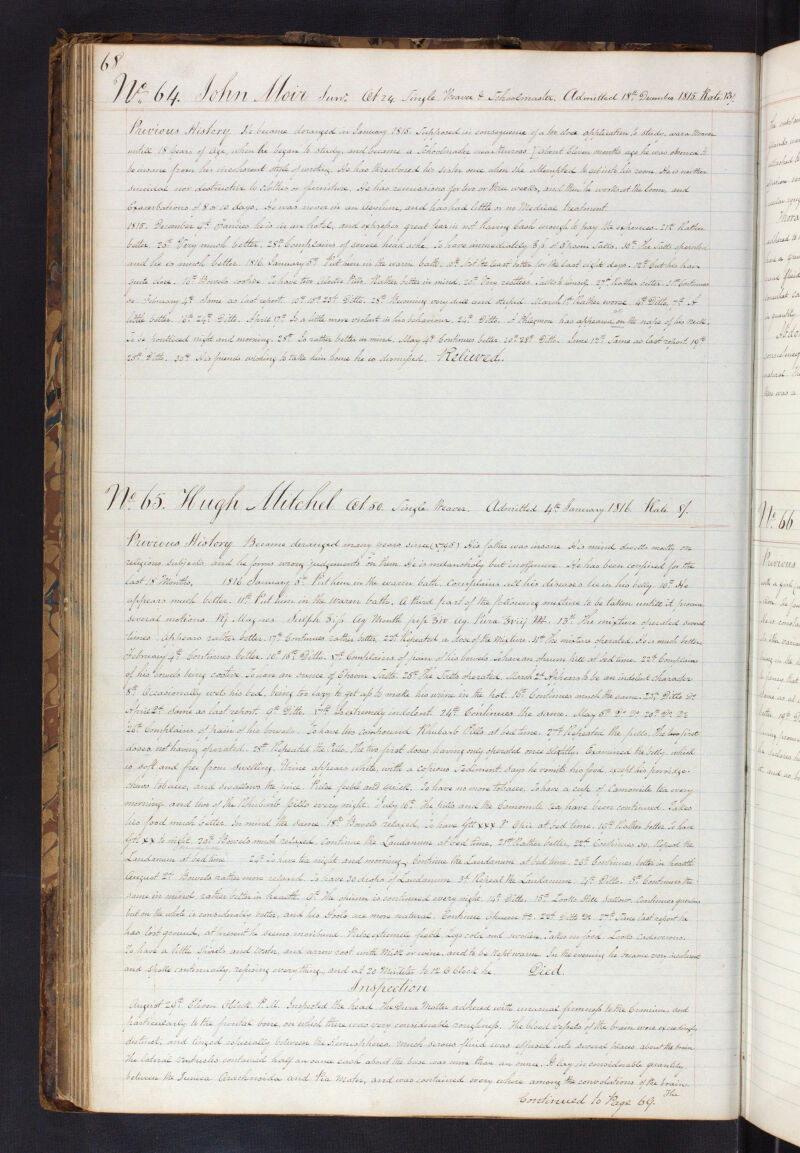 68
No. 64. John Moir Junr. Aet 24. Single Weaver & Schoolmaster. Admitted 18th December 1815. Rate 15/
Previous History He became deranged in January 1815. Supposed in consequence of a too close application to study, was a Weaver
untill 18 years of Age, when he began to study, and became a Schoolmaster near Kinross. About Eleven months ago he was observed to
be insane from his incoherent style of writing. He has threatened his sister once when she attempted to get into his room. He is neither
suicidal nor destructive to clothes or furniture. He has remissions for two or three weeks, and then he works at the loom, and
Exacerbations of 8 or 10 days. He was never in an Asylum, and has had little or no Medical treatment.
1815. December Fancies he is in an hotel, and expresses great fear in not having Cash enough to pay the expences. 21st Rather
better. 26th Very much better. 28th Complains of severe head ache. To have immediately of Epsom Salts. 30th The Salts operated
and he is much better 1816. January 5th Put him in the warm bath. 10th Not the least better for the last eight days. 12th
quite close. 16th Bowels costive To have two Aloetic Pills. Rather better in mind. 20th Very restless talks to himself. 27th Rather better. Continues
so. February 4th Same as last report. 10th 16th 23d Ditto. 28th Becoming very dull and stupid. March 1st Rather worse. Ditto. 7th A
little better. 24th Ditto. April 17th Is a little more violent in his behaviour. 24th Ditto. A Phlegmon has appeared on the nape of his neck.
To be poulticed night and morning. 28th Is rather better in mind. May 4th Continues better. 20th 28th Ditto. June 12th Same as last report 19th
25th Ditto. 30th His friends wishing to take him home he is dismissed. Relieved.
No. 65. Hugh Mitchel Aet 50. Single Weaver. Admitted 4th January 1816. Rate 8/.
Previous History Became deranged many years since (1795) His father was insane. His mind dwells mostly on
religious subjects and he forms wrong judgements on them. He is melancholy but inoffensive. He has been confined for the
last 18 Months. 1816 January 5th Put him in the warm bath. Complains all his diseases lie in his belly. 10th He
appears much better. 11th Put him in the warm bath. A third part of the following mixture to be taken untill it procure
several motions. Magnes Sulph Aq Menth pip Aq. Pura M. 13th The mixture operated several
times. Appears rather better. 17th Continues rather better. 22d Repeated a dose of the Mixture. 31st The mixture operated. He is much better
February 4th Continues better. 10th 16th Ditto. Complains of pain of his bowels. To have an opium pill at bed time. 22d Complains
of his bowels being costive. To have an ounce of Epsom Salts. 28th The Salts operated. March 2d Appears to be an indolent character
8th Occasionally wets his bed, being too lazy to get up to make his urine in the pot. 16th Continues much the same. Ditto Do
April 2d same as last report. 9th Ditto. 17th Is extremely indolent. 24th Continues the same. May 8th Do Do 20th Do Do
26th Complains of pain of his bowels. To have two compound Rhubarb Pills at bed time. 27th Repeated the pills, the two first
doses not having operated. 28th Repeated the Pills. The two first doses having only operated once slightly. Examined the belly, which
is soft and free from swelling. Urine appears white, with a copious Sediment. Says he vomits his food, except his porridge.
chaws tobacco, and swallows the juice. Pulse feeble and quick. To have no more tobacco. To have a cup of Camomile tea every
morning and two of the Rhubarb pills every night. July 16th The pills and the Camomile tea have been continued. Takes
his food much better. In mind the same. 18th Bowels relaxed. To have Gtt xxx T. Opii at bed time. 19th Rather better. To have
Gtt xx to night. 20th Bowels much relaxed. Continue the Laudanum at bed time. 21st Rather better. 22d Continues so. Repeat the
Laudanum at bed time 24th To have tea night and morning. Continue the Laudanum at bed time. 26th Continues better in health
August 2d Bowels rather more relaxed. To have 30 drops of Laudanum 3d Repeat the Laudanum. 4th Ditto. 8th Continues the
same in mind, rather better in health. 9th The opium is continued every night. 14th Ditto. 15th Looks still sallow. Continues
but on the whole is considerably better, and his stools are more natural. Continue Opium 22d Ditto Do. 27th Since last report he
has lost ground, at present he seems moribund. Pulse extremely feeble. Legs cold and swollen. Takes no food. Looks cadaverous.
To have a little Spirits and Water, and arrow root with Milk or wine, and to be kept warm. In the evening he became very incoherent
and spoke continually, refusing everything, and at 20 Minutes to 12 O'Clock he Died.
Inspection
August 29th Eleven OClock P.M. Inspected the head. The Dura Matter adhered with unusual firmness to the Cranium, and
particularly to the frontal bone, on which there was very considerable roughness. The blood vessels of the brain were exceedingly
distinct, and tinged especially between the hemispheres. Much serous fluid was effused into several places about the brain
The lateral ventricles contained half an ounce each about the base was more than an ounce. It lay in considerable quantity
between the Tunica Arachnoidea and Pia Mater, and was contained every where among the convolutions of the brain.
The
Continued to Page 69.
No. 66
Previous